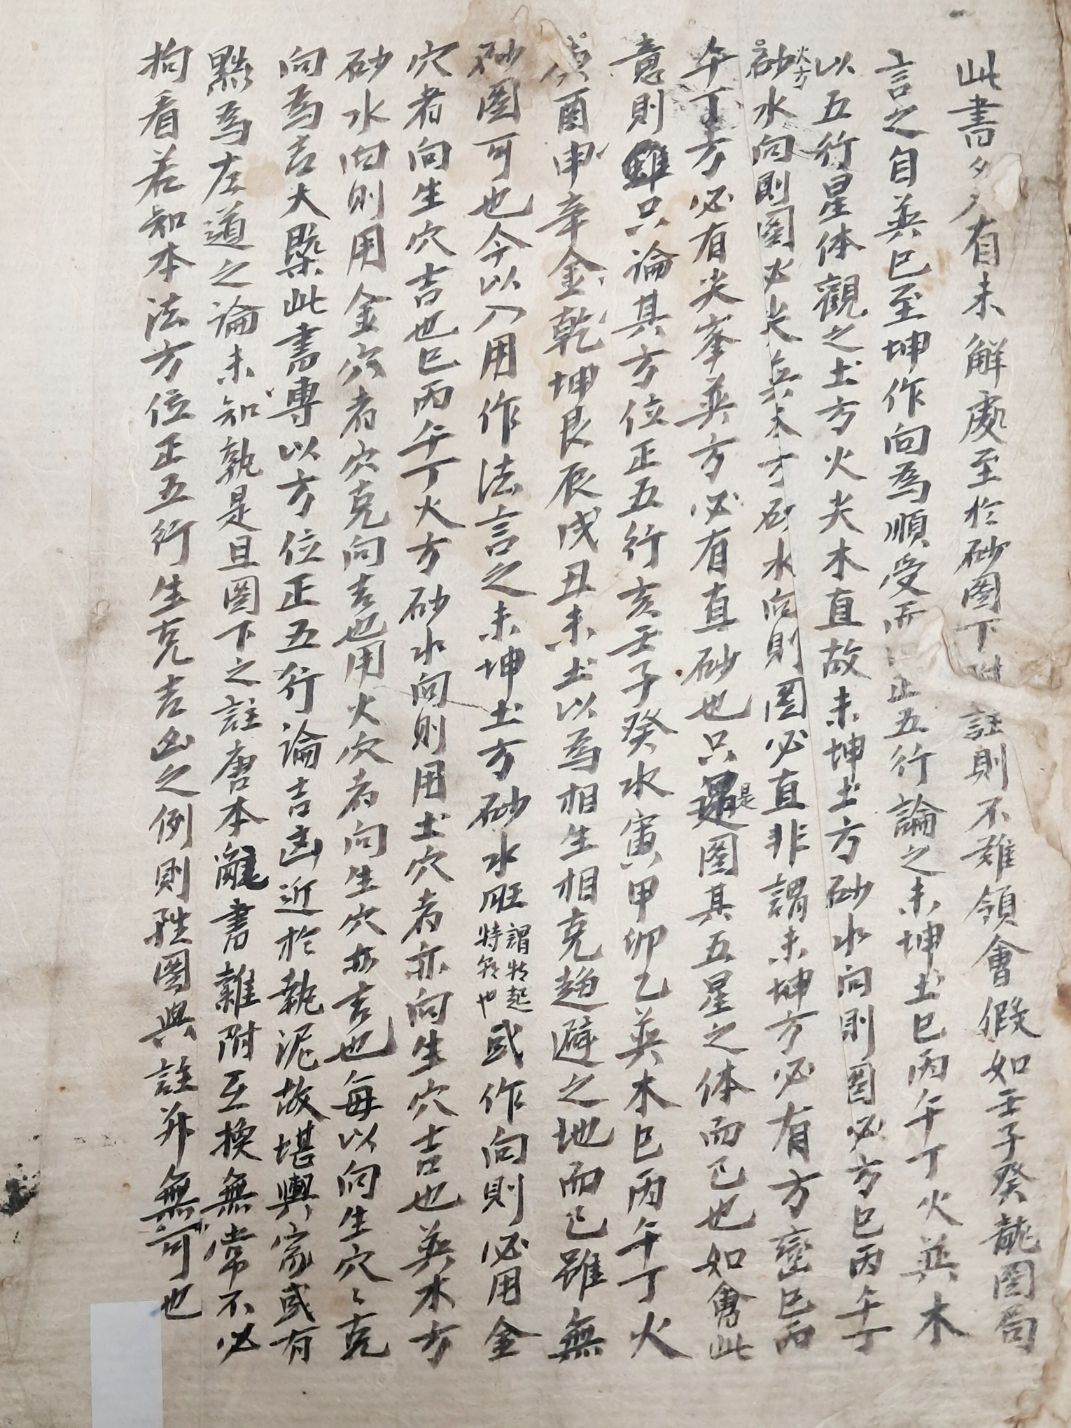 此書多有未解處至於砂圖下附註則不難領會假如壬子癸龍圖局
言之自巽巳至坤作向為順受而正五行論之未坤土巳丙午丁火巽木
以五行星体觀之土方火尖木直故未坤土方砂水向則圖必方巳丙午丁
火方砂水向則圖必尖巽木方砂水向則圖必直非謂未坤方必有方巒巳丙
午丁方必有尖峯巽方必有直砂也只是圖其五星之体而已也如會此
意則雖只論其方位正五行亥壬子癸水寅甲卯乙巽木巳丙午丁火
庚酉申辛金乾坤艮辰戌丑未土以為相生相克趨避之地而已雖無
砂圖可也今以入用作法言之未坤土方砂水旺謂特起特爺也或作向則必用金
穴者向生穴吉也巳丙午丁火方砂水向則用土穴者亦向生穴吉也巽木方
砂水向則用金穴者穴克向吉也用火穴者向生穴亦吉也每以向生穴〻克
向為吉大槩此書專以方位正五行論吉凶近於執泥故堪輿家或有
黜為左道之論未知孰是且圖下之註唐本龍書雜附互換無常不必
拘看若知本法方位正五行生克吉凶之例則雖圖與註并無可也